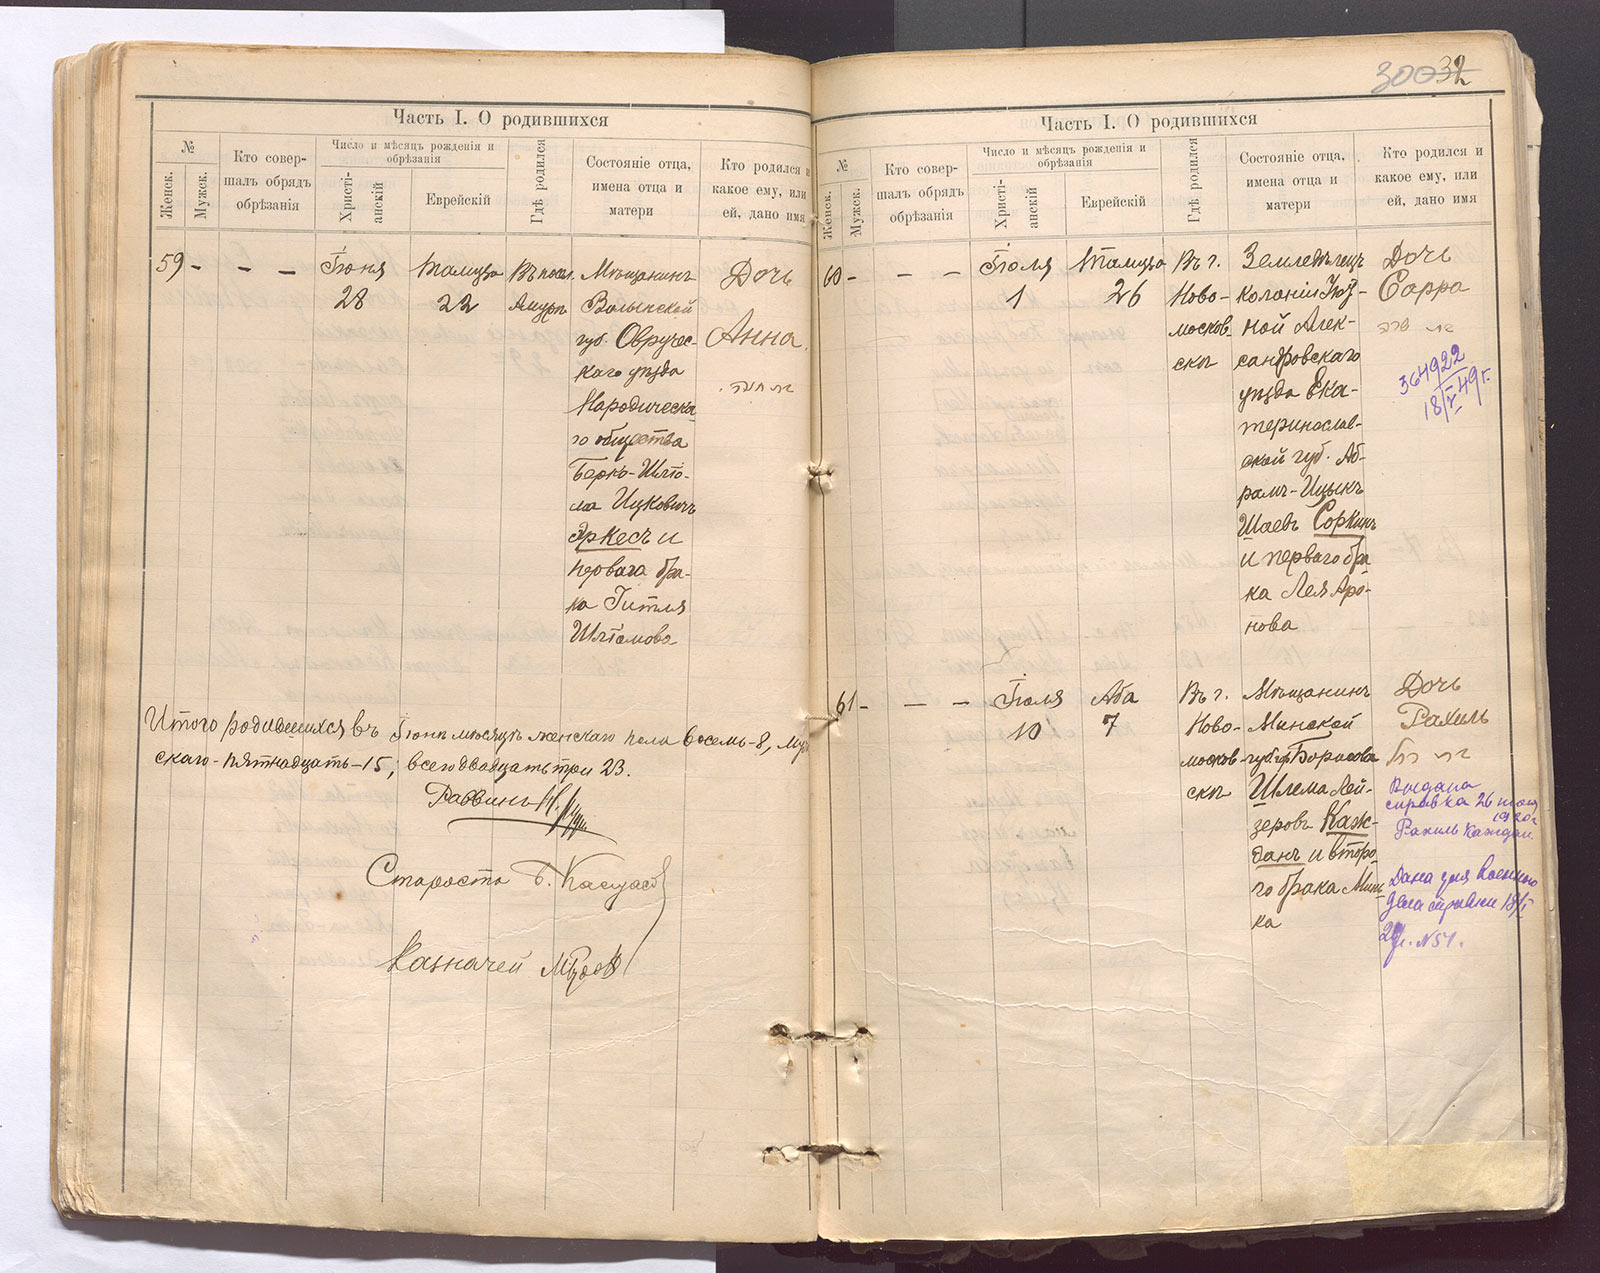 Часть I. О родившихся
№
Женск.
Мужск.
Кто совер-
шалъ обрядъ
обрѣзанія
Число и мѣсяцъ рожденія и
обрѣзанія
Христі-
анскій
Еврейскій
Гдѣ родился
Состояніе отца,
имена отца и
матери
Кто родился и
какое ему, или
ей, дано имя
59 - - -
Іюня
28
Тамуза
22
Въ пос.
Амурѣ
Мѣщанинъ
Волынской
губ. Овручес-
каго уѣзда
Народическа
го общества
Берко-Шлiо-
ма Ицковичъ
Эркесъ и
перваго бра-
ка Гитля
Шлiомова
Дочь
Анна.
Итого родившихся въ Іюнѣ мѣсяцѣ женскаго пола восемь-8, му
скаго-пятнадцать-15, всего двадцать три 23.
Раввинъ
Староста
Казначей
300 32
Часть I. О родившихся
№
Женск.
Мужск.
Кто совер-
шалъ обрядъ
обрѣзанія
Число и мѣсяцъ рожденія и
обрѣзанія
Христі-
анскій
Еврейскій
Гдѣ родился
Состояніе отца,
имена отца и
матери
Кто родился и
какое ему, или
ей, дано имя
60 - - -
Іюля
1
Тамуза
26
Въ г.
Ново-
москов
скѣ
Земледѣлецъ
колоніи
ной Алек-
сандровскаго
уѣзда Ека-
теринослав-
ской губ. Аб-
рамъ-Ицыкъ
Шаевъ Соркинъ
и перваго бра
ка Лея Аро-
нова
Дочь
Сорра
364922
18/V 49 г.
61 - - -
Іюля
10
Аба
7
Въ г.
Ново-
москов
скѣ
Мѣщанинъ
Минской
губ. гор. Борисова
Шлема Лей-
зеровъ Каж-
данъ и второ
го брака Минь
ка
Дочь
Рахиль
רחל
Выдана
справка 26
Рахиль Каждан
Дана для военного
дела справки 18/I
29 г. N 51.